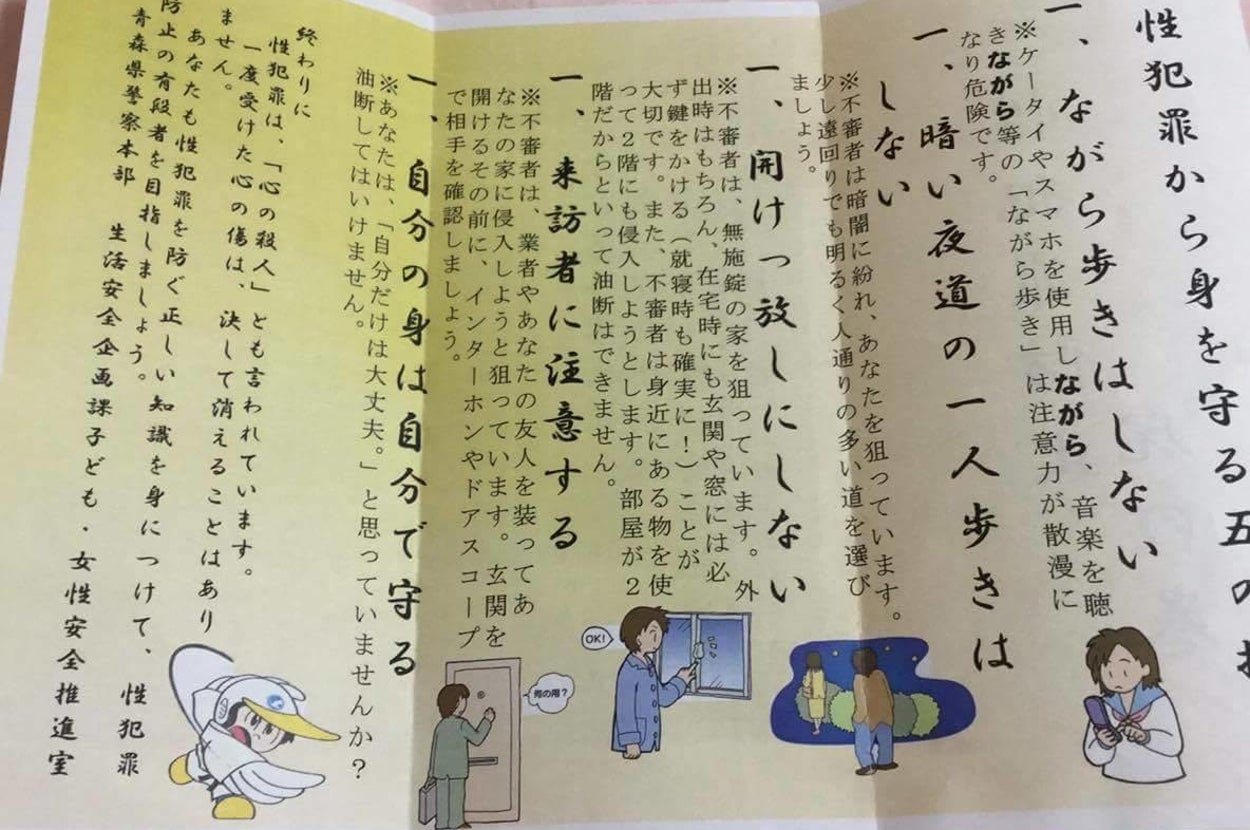 性犯罪から身を守る五の
一、ながら歩きはしない
※ケータイやスマホを使用しながら、音楽を聴
きながら等の「ながら歩き」は注意力が散漫に
なり危険です。
一、暗い夜道の一人歩きは
しない
※不審者は暗闇に紛れ、あなたを狙っています。
少し遠回りでも明るく人通りの多い道を選び
ましょう。
一、開けっ放しにしない
※不審者は、無施錠の家を狙っています。外
出時はもちろん、在宅時にも玄関や窓には必
ず鍵をかける（就寝時も確実に！）ことが
大切です。また、不審者は身近にある物を使
って２階にも侵入しようとします。部屋が２
階だからといって油断はできません。
一、来訪者に注意する
※不審者は、業者やあなたの友人を装ってあ
なたの家に侵入しようと狙っています。玄関を
開けるその前に、インターホンやドアスコープ
で相手を確認しましょう。
一、自分の身は自分で守る
※あなたは、「自分だけは大丈夫。」と思っていませんか？
油断してはいけません。
終わりに
性犯罪は、「心の殺人」とも言われています。
一度受けた心の傷は、決して消えることはあり
ません。
あなたも性犯罪を防ぐ正しい知識を身につけて、性犯罪
防止の有段者を目指しましょう。
青森県警察本部 生活安全企画課子ども・女性安全推進室
OK!
何の用？